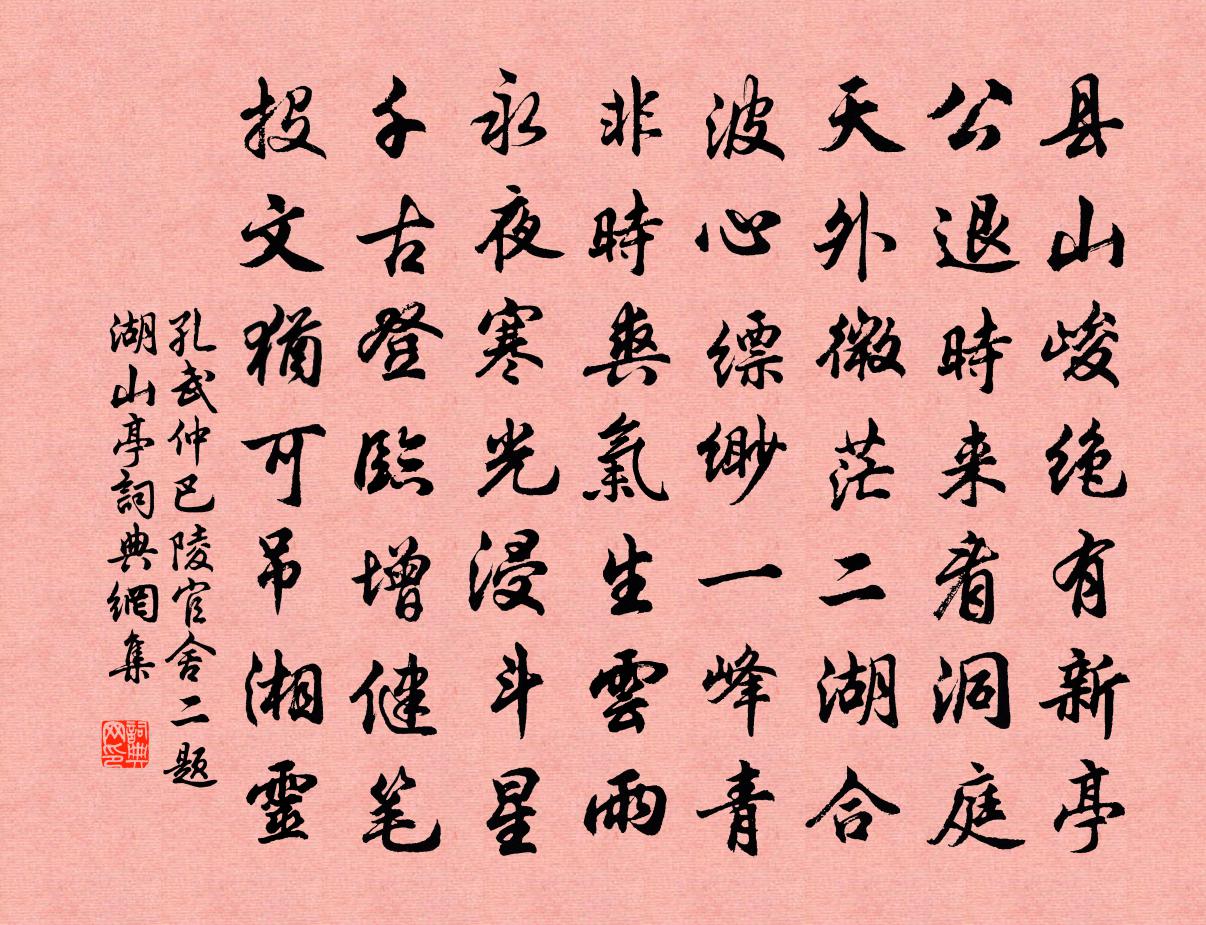 县山峻绝有新亭
公退時来看洞庭
天外微茫二湖合
波心缥缈一峰青
非時爽氣生雲雨
永夜寒光浸斗星
千古登臨增健笔
投文猶可吊湘靈
孔武仲巴陵官舍二题
湖山亭詞典網集
詞典网印